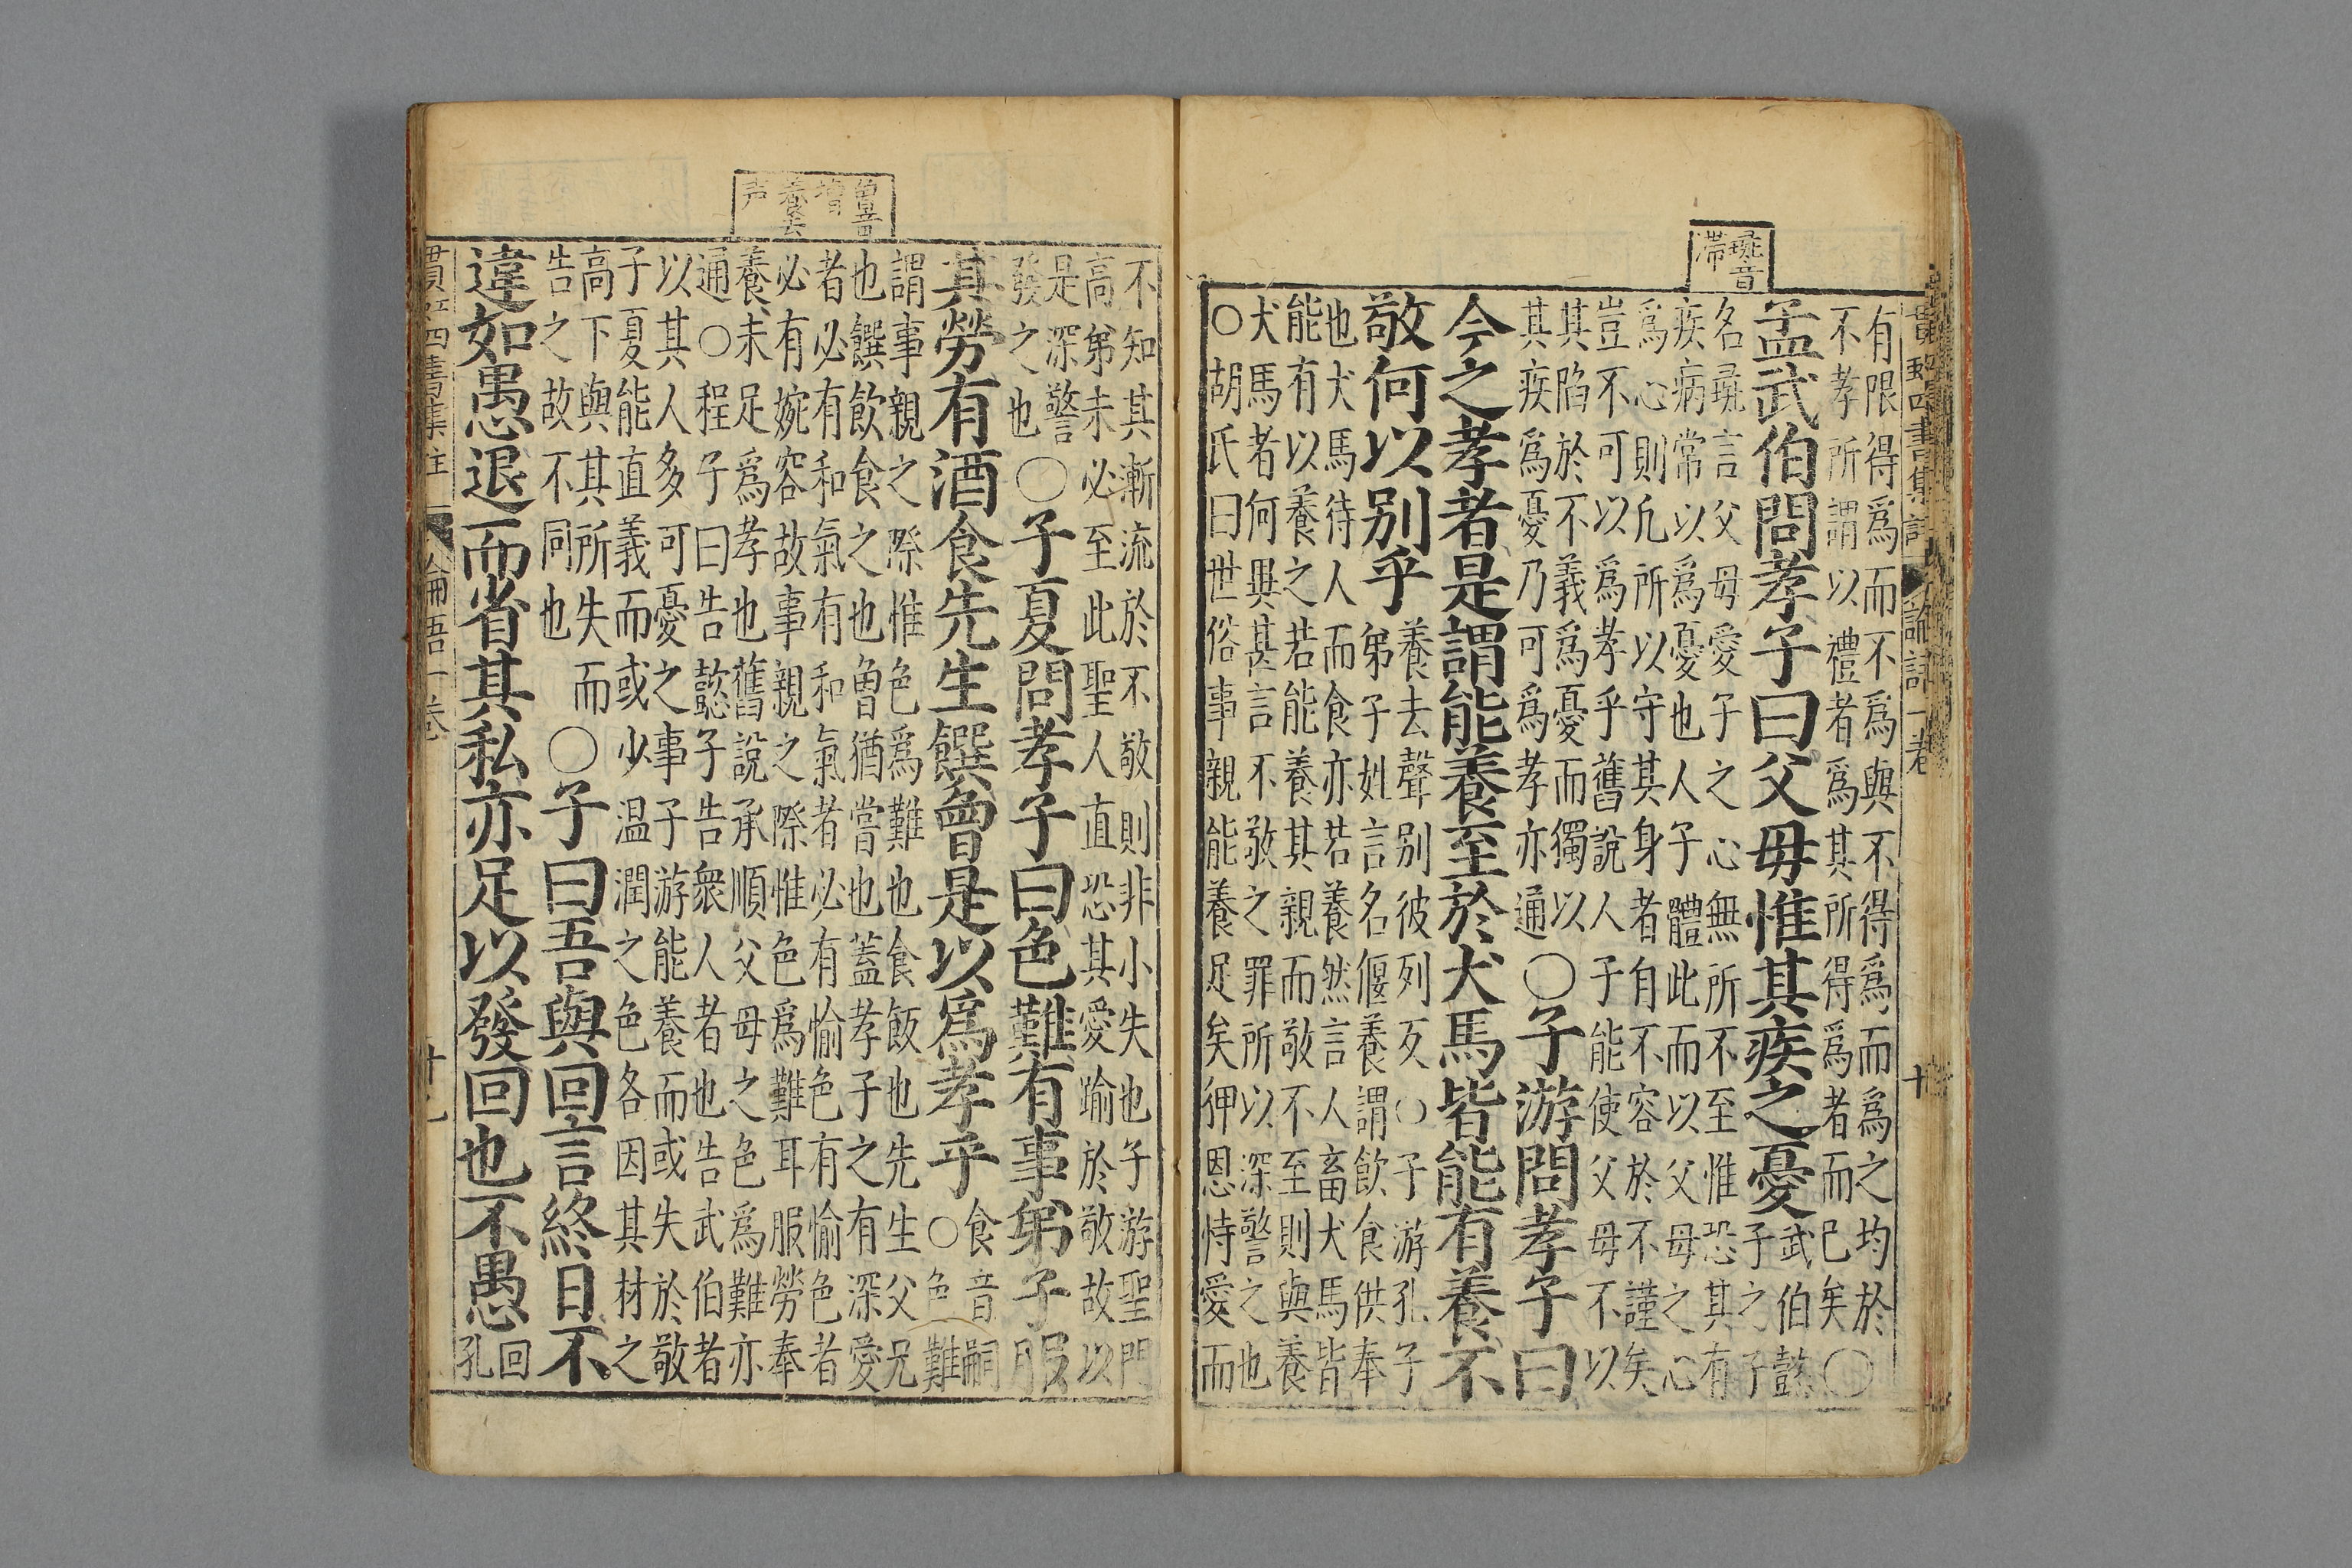 彘音
滯
貫珠四書集註 論語一卷 十
有限得爲而不爲與不得爲而爲之均於
不孝所謂以禮者爲其所得爲者而已矣○
孟武伯問孝子曰父母惟其疾之憂
武伯懿
子之子
名彘言父母愛子之心無所不至惟恐其有
疾病常以爲憂也人子體此而以父母之心
爲心則凡所以守其身者自不容於不謹矣
豈不可以爲孝乎舊說人子能使父母不以
其陷於不義爲憂而獨以
其疾爲憂乃可爲孝亦通
○子游問孝子曰
今之孝者是謂能養至於犬馬皆能有養不
敬何以别乎
養去聲别彼列反○子游孔子
弟子姓言名偃養謂飲食供奉
也犬馬待人而食亦若養然言人畜犬馬皆
能有以養之若能養其親而敬不至則與養
犬馬者何異甚言不敬之罪所以深警之也
○胡氏曰世俗事親能養足矣狎恩恃愛而
曾音
增
養去
声
不知其漸流於不敬則非小失也子游聖門
高弟未必至此聖人直恐其愛踰於敬故以
是深警
發之也
○子夏問孝子曰色難有事弟子服
其勞有酒食先生饌曾是以爲孝乎
食音嗣
○色難
謂事親之際惟色爲難也食飯也先生父兄
也饌飲食之也曾猶嘗也蓋孝子之有深愛
者必有和氣有和氣者必有愉色有愉色者
必有婉容故事親之際惟色爲難耳服勞奉
養未足爲孝也舊說承順父母之色爲難亦
通○程子曰告懿子告衆人者也告武伯者
以其人多可憂之事子游能養而或失於敬
子夏能直義而或少温潤之色各因其材之
高下與其所失而
告之故不同也
○子曰吾與回言終日不
違如愚退而省其私亦足以發回也不愚
回
孔
四書集註 論語一卷